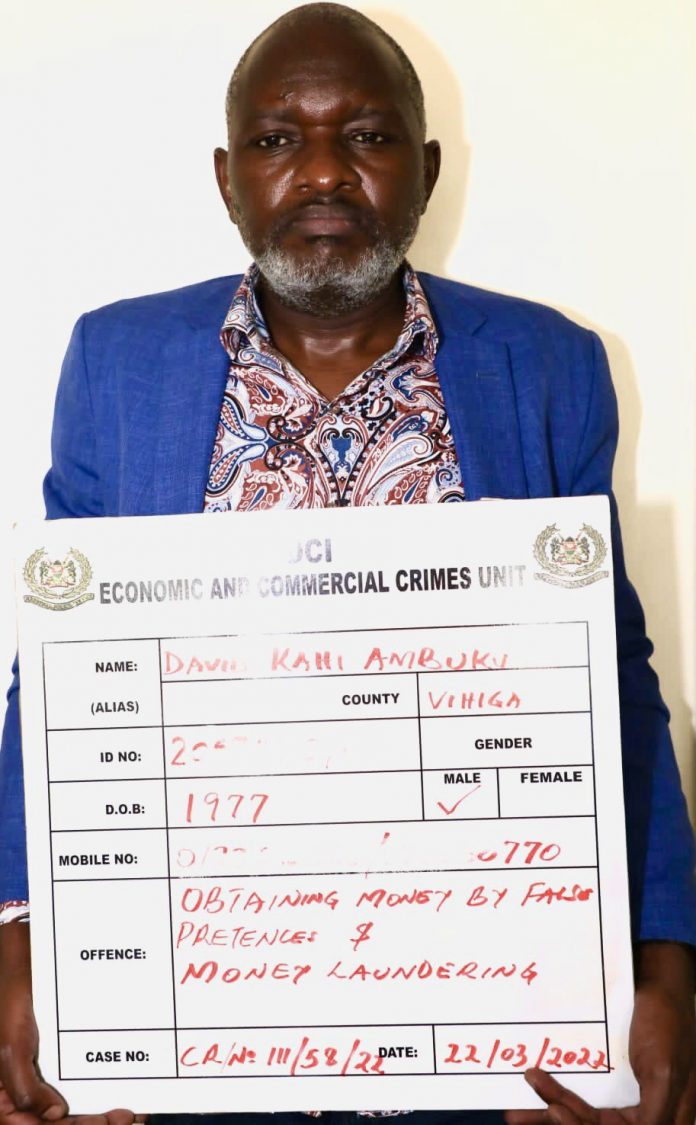 DCI
ECONOMIC AND COMMERCIAL CRIMES UNIT
NAME: DAVID KAHI AMBUKU
(ALIAS) COUNTY VIHIGA
ID NO:
GENDER
MALE FEMALE
D.O.B: 1977 ✓
MOBILE NO: 0770
OFFENCE: OBTAINING MONEY BY FALSE
PRETENCES &
MONEY LAUNDERING
CASE NO: CR/No 111/58/22 DATE: 22/03/2022